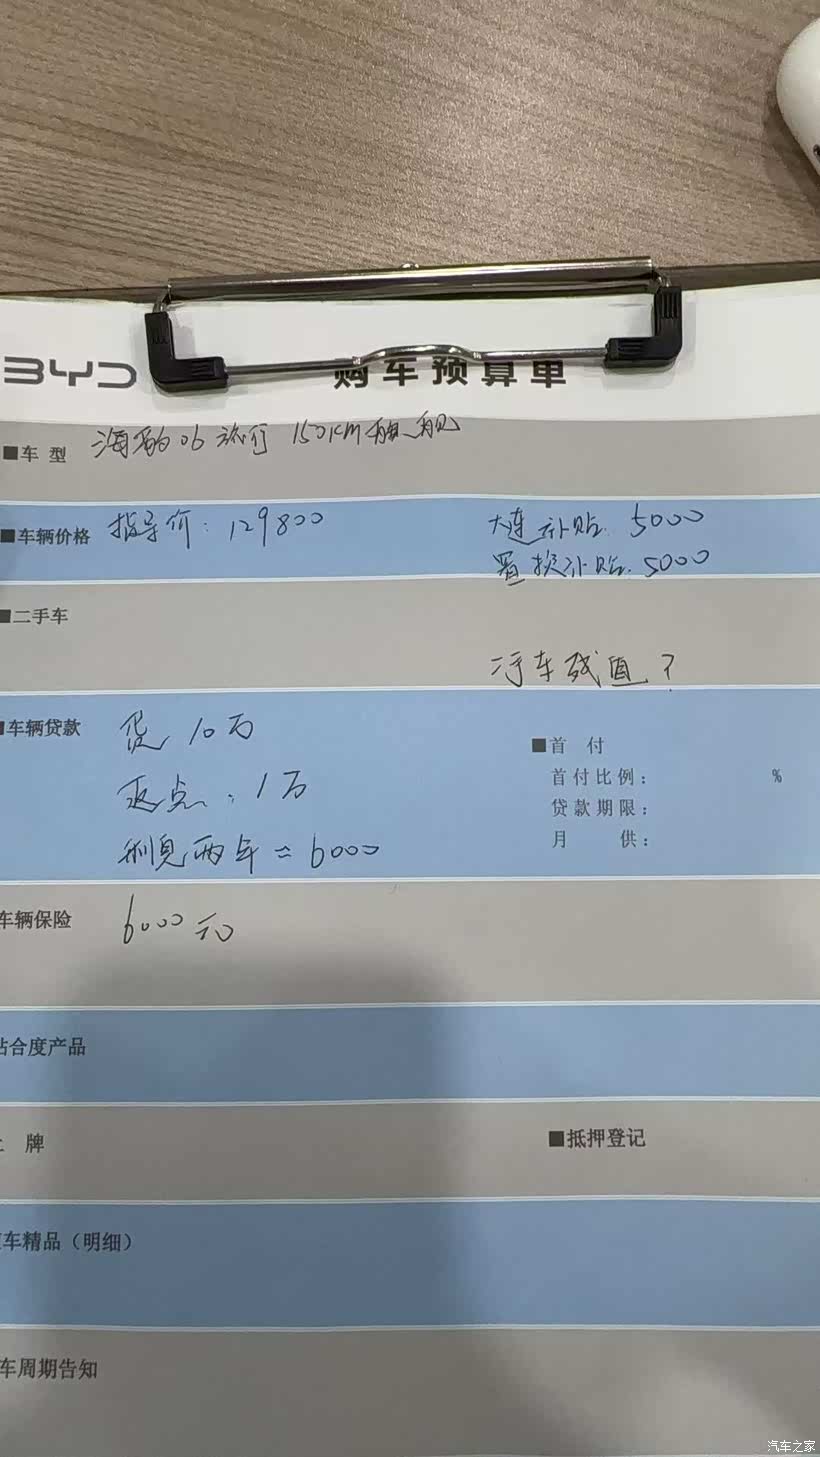 BYD
购车预算单
■车 型 海豹06旅行 150KM旗舰
■车辆价格 指导价：129800
大连补贴. 5000
置换补贴. 5000
■二手车
污车残值？
■车辆贷款 贷 10万
返点：1万
利息两年=6000
■首 付
首付比例： %
贷款期限：
月 供：
车辆保险 6000元
粘合度产品
上 牌
■抵押登记
车精品（明细）
车周期告知
汽车之家